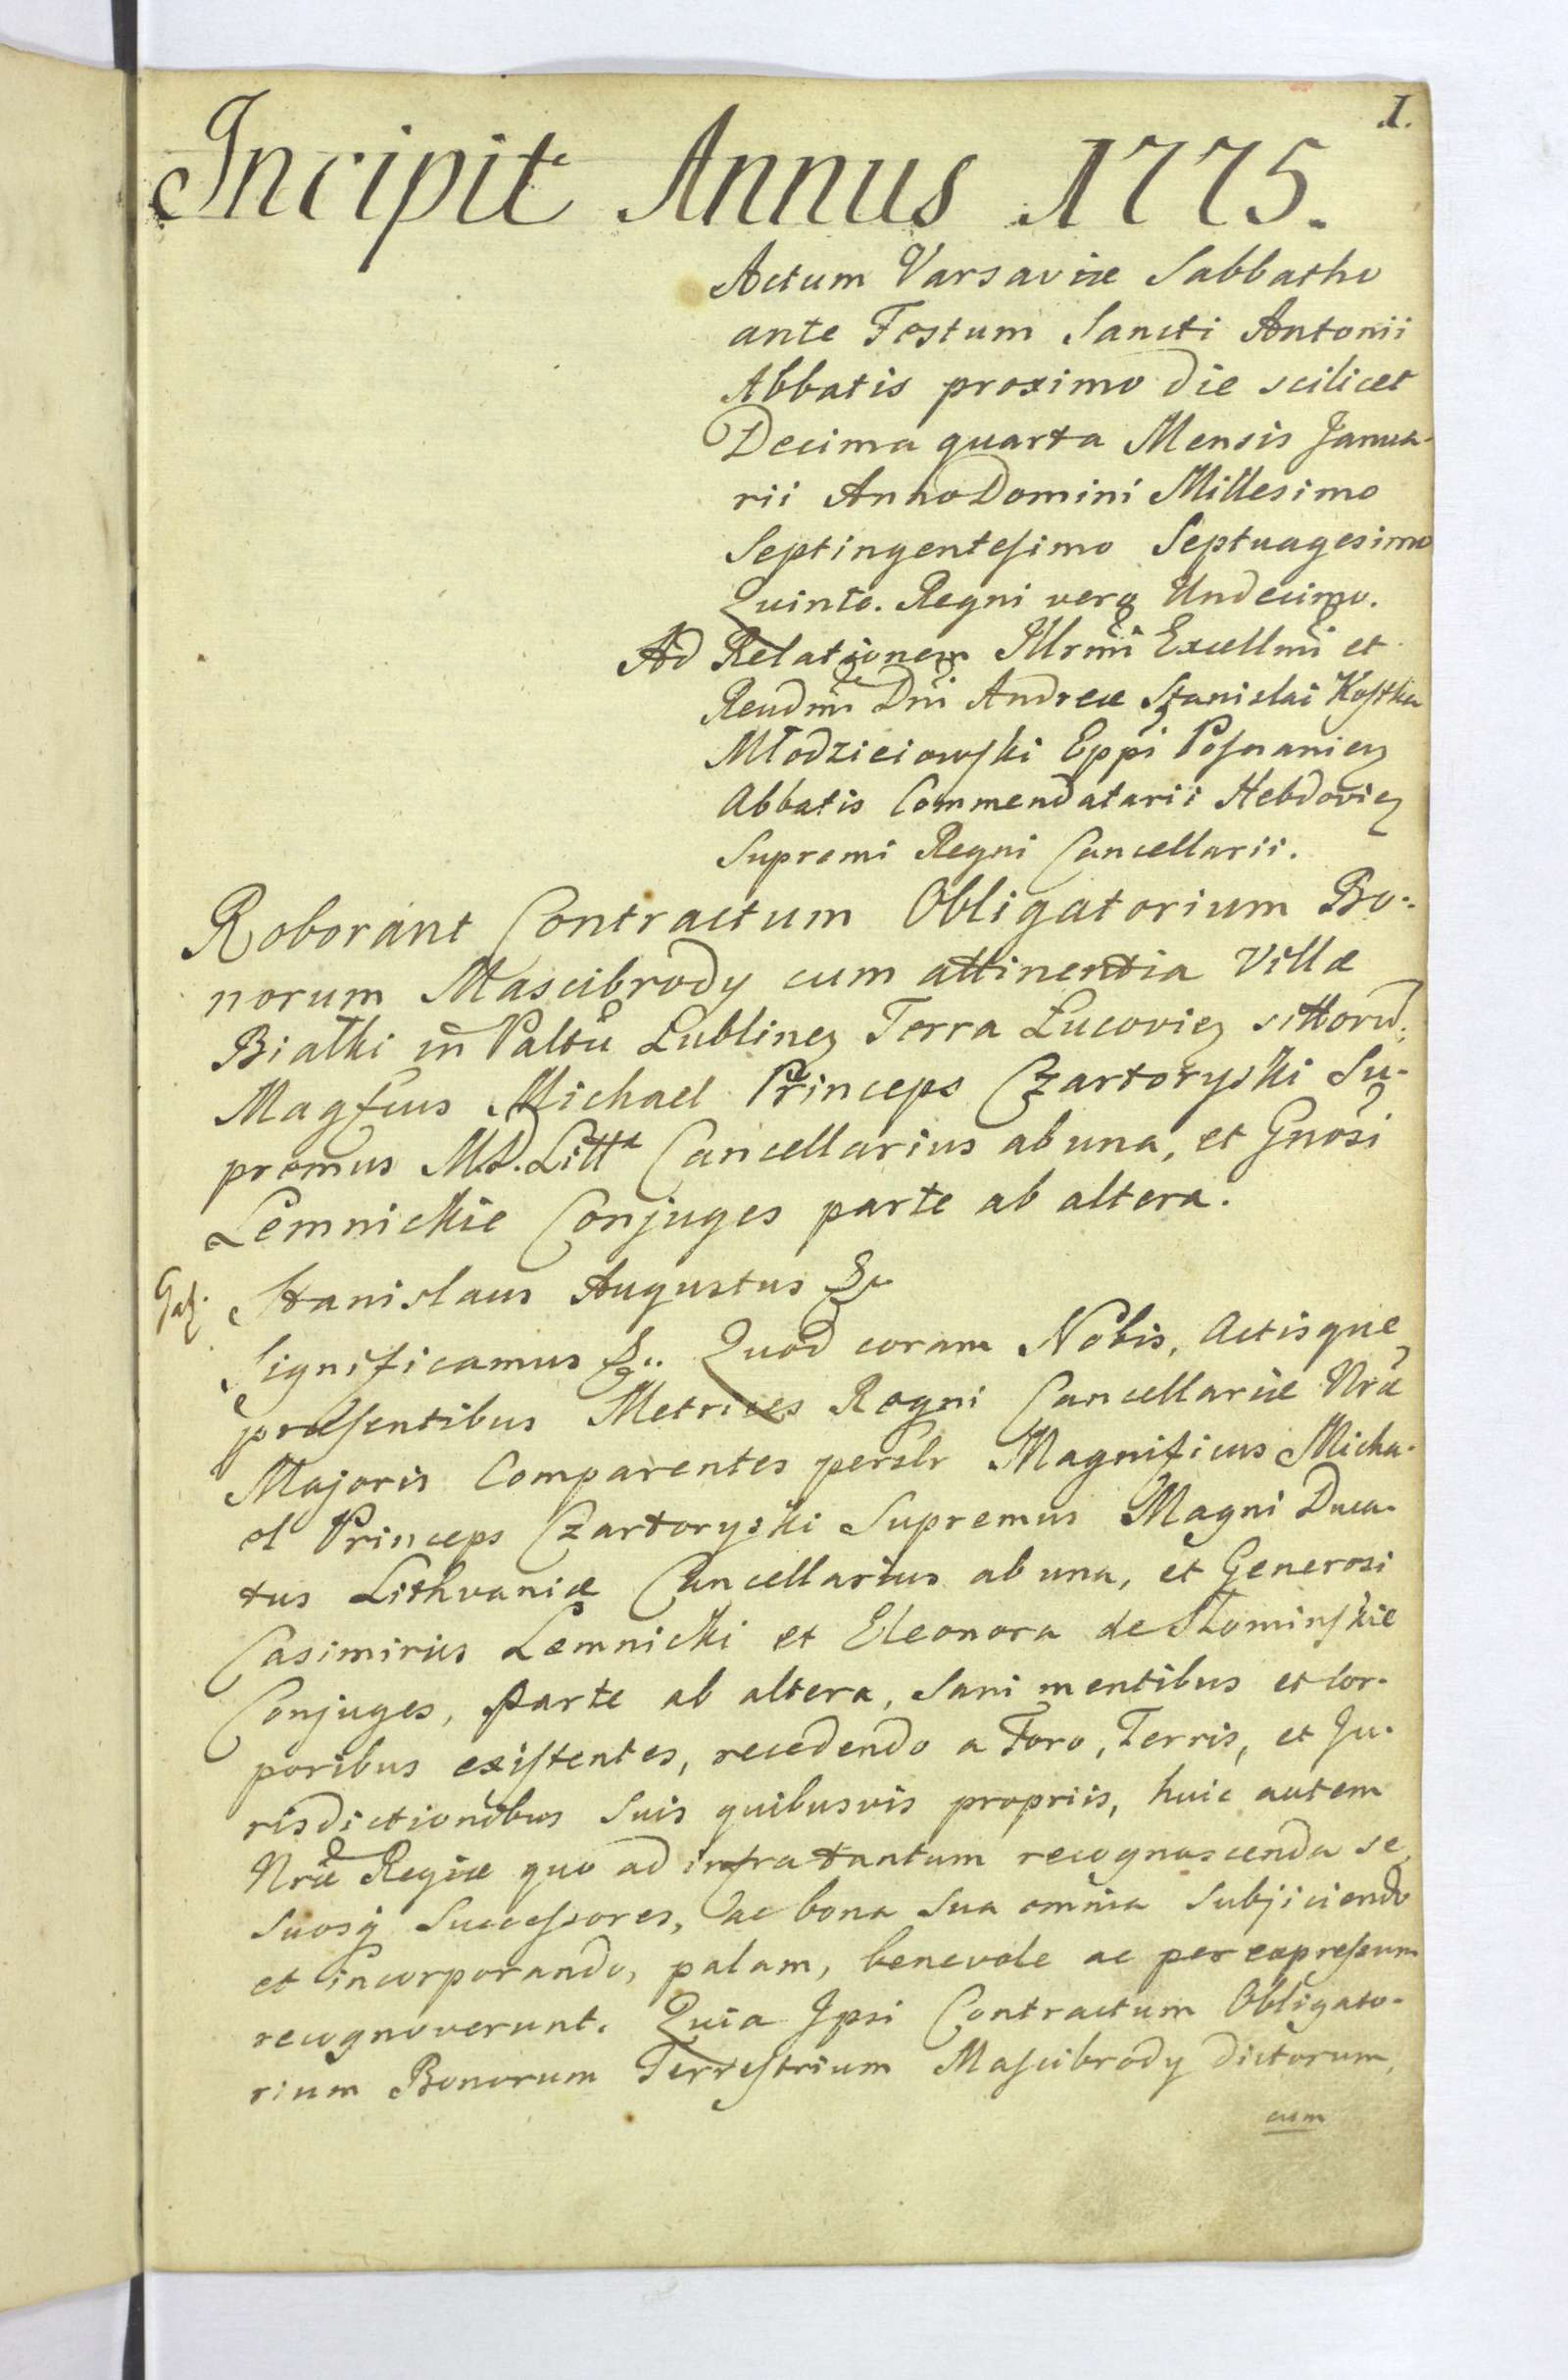 1.
Incipit Annus 1775.
Actum Varsaviæ Sabbatho
ante Festum Sancti Antonii
Abbatis proximo die scilicet
Decima quarta Mensis Janua-
rii Anno Domini Millesimo
Septingentesimo Septuagesimo
Quinto. Regni vero Undecimo.
Ad Relationem Illrmi Excellmi et
Rendmi Dni Andreæ Stanislai Kostka
Młodzieiowski Eppi Posnanien
Abbatis Commendatarii Hebdovien
Supremi Regni Cancellarii.
Roborant Contractum Obligatorium Bo-
norum Mascibrody cum attinentia Villæ
Białki in Paltu Lublinen Terra Łucovien sittoru
Magfcus Michael Princeps Czartoryski Su-
premus M.D. Litt Cancellarius ab una, et Gnosi
Lemnickie Conjuges parte ab altera.
Stanislaus Augustus &c
Significamus &c. Quod coram Nobis, Actisque
præsentibus Metrices Regni Cancellariæ Nræ
Majoris Comparentes perslr Magnificus Micha-
el Princeps Czartoryski Supremus Magni Duca-
tus Lithvaniæ Cancellarius ab una, et Generosi
Casimirus Lemnicki et Eleonora de Słominskie
Conjuges, parte ab altera, Sani mentibus et Cor-
poribus existentes, recedendo a Foro, Terris, et Ju-
risdictionibus Suis quibusvis propriis, huic autem
Nræ Regiæ quo ad infra tantum recognoscenda se,
Suosq Successores, ac bona Sua omnia Subjiciendo
et incorporando, palam, benevole ac per expressum
recognoverunt. Quia Ipsi Contractum Obligato-
rium Bonorum Terrestrium Mascibrody dictorum,
cum